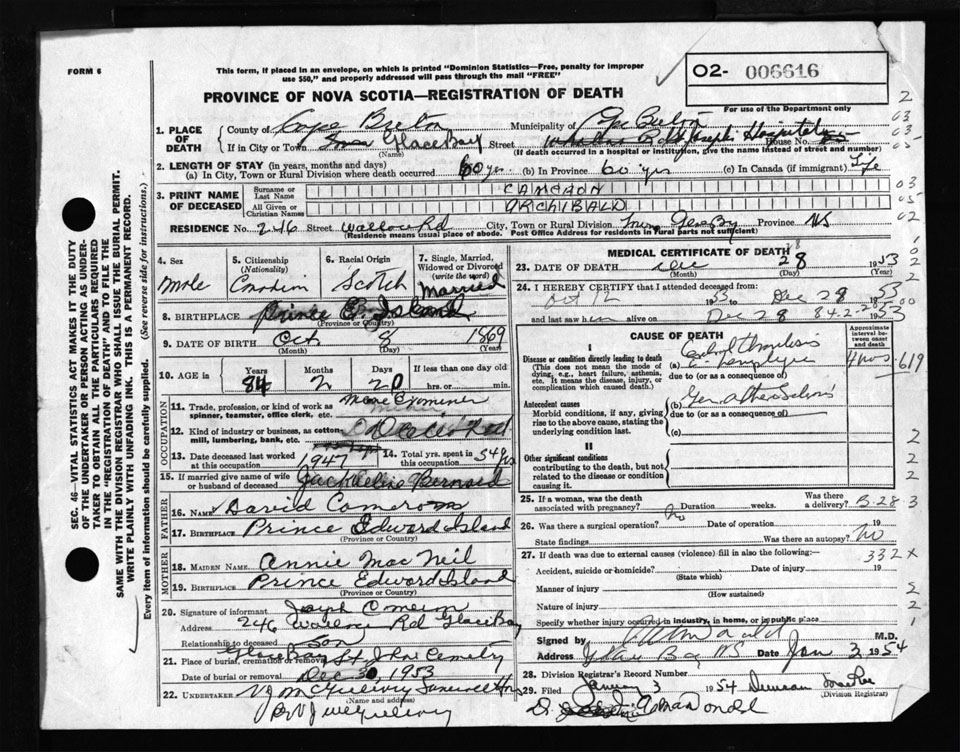 FORM 6
This form, if placed in an envelope, on which is printed "Dominion Statistics—Free, penalty for improper
use $50," and properly addressed will pass through the mail "FREE"
O2- 006616
For use of the Department only
PROVINCE OF NOVA SCOTIA—REGISTRATION OF DEATH
SEC. 46—VITAL STATISTICS ACT MAKES IT THE DUTY
OF THE UNDERTAKER OR PERSON ACTING AS UNDER-
TAKER TO OBTAIN ALL THE PARTICULARS REQUIRED
IN THE "REGISTRATION OF DEATH" AND TO FILE THE
SAME WITH THE DIVISION REGISTRAR WHO SHALL ISSUE THE BURIAL PERMIT.
WRITE PLAINLY WITH UNFADING INK. THIS IS A PERMANENT RECORD.
Every item of information should be carefully supplied. (See reverse side for instructions.)
1. PLACE OF DEATH
County of Cape Breton Municipality of Cape Breton
If in City or Town Glace Bay Street St Josephs Hospital House No.
(Name) (If death occurred in a hospital or institution, give the name instead of street and number)
2. LENGTH OF STAY (in years, months and days)
(a) In City, Town or Rural Division where death occurred 60 yrs. (b) In Province 60 yrs (c) In Canada (if immigrant) Life
3. PRINT NAME OF DECEASED
Surname or Last Name CAMERON
All Given or Christian Names ARCHIBALD
RESIDENCE No. 246 Street Wallace Rd City, Town or Rural Division Glace Bay Province NS
(Residence means usual place of abode. Post Office Address for residents in Rural parts not sufficient)
4. Sex
Male
5. Citizenship (Nationality)
Canadian
6. Racial Origin
Scotch
7. Single, Married, Widowed or Divorced (write the word)
Married
8. BIRTHPLACE Prince E. Island
(Province or Country)
9. DATE OF BIRTH Oct 8 1869
(Month) (Day) (Year)
10. AGE in Years Months Days If less than one day
84 2 20 hrs. or min.
OCCUPATION
11. Trade, profession, or kind of work as
spinner, teamster, office clerk, etc. Mine Examiner
12. Kind of industry or business, as cotton
mill, lumbering, bank, etc.
13. Date deceased last worked
at this occupation 1947
14. Total yrs. spent in
this occupation 54 yrs
15. If married give name of wife
or husband of deceased Bernard
FATHER
16. NAME David Cameron
17. BIRTHPLACE Prince Edward Island
(Province or Country)
MOTHER
18. MAIDEN NAME Annie MacNeil
19. BIRTHPLACE Prince Edward Island
(Province or Country)
20. Signature of informant Joseph Cameron
Address 246 Wallace Rd Glace Bay
Relationship to deceased Son
21. Place of burial, cremation or removal Glace Bay St John Cemetery
Date of burial or removal Dec 30 1953
22. UNDERTAKER V J McGillivray
(Name and address)
V J McGillivray
MEDICAL CERTIFICATE OF DEATH
23. DATE OF DEATH Dec 28 1953
(Month) (Day) (Year)
24. I HEREBY CERTIFY that I attended deceased from:
Oct 12 1953 Dec 28 53
and last saw him alive on Dec 28 1953
84-2-20
CAUSE OF DEATH
Approximate interval between onset and death
I
Disease or condition directly leading to death
(This does not mean the mode of dying, e.g., heart failure, asthenia, etc. It means the disease, injury, or complication which caused death.)
(a) Cerebral Thrombosis
Hemiplegia
4 mos
619
due to (or as a consequence of)
Antecedent causes
Morbid conditions, if any, giving rise to the above cause, stating the underlying condition last.
(b) Gen. atherosclerosis
due to (or as a consequence of)
(c)
II
Other significant conditions
contributing to the death, but not related to the disease or condition causing it.
25. If a woman, was the death
associated with pregnancy? No Duration weeks. Was there a delivery?
B-28-3
26. Was there a surgical operation? Date of operation 19
State findings Was there an autopsy? No
27. If death was due to external causes (violence) fill in also the following:—
332 X
Accident, suicide or homicide? Date of injury 19
(State which)
Manner of injury
(How sustained)
Nature of injury
Specify whether injury occurred in industry, in home, or in public place
Signed by M.D.
Address Glace Bay NS Date Jan 3 1954
28. Division Registrar's Record Number
29. Filed January 3 1954 Duncan
(Division Registrar)